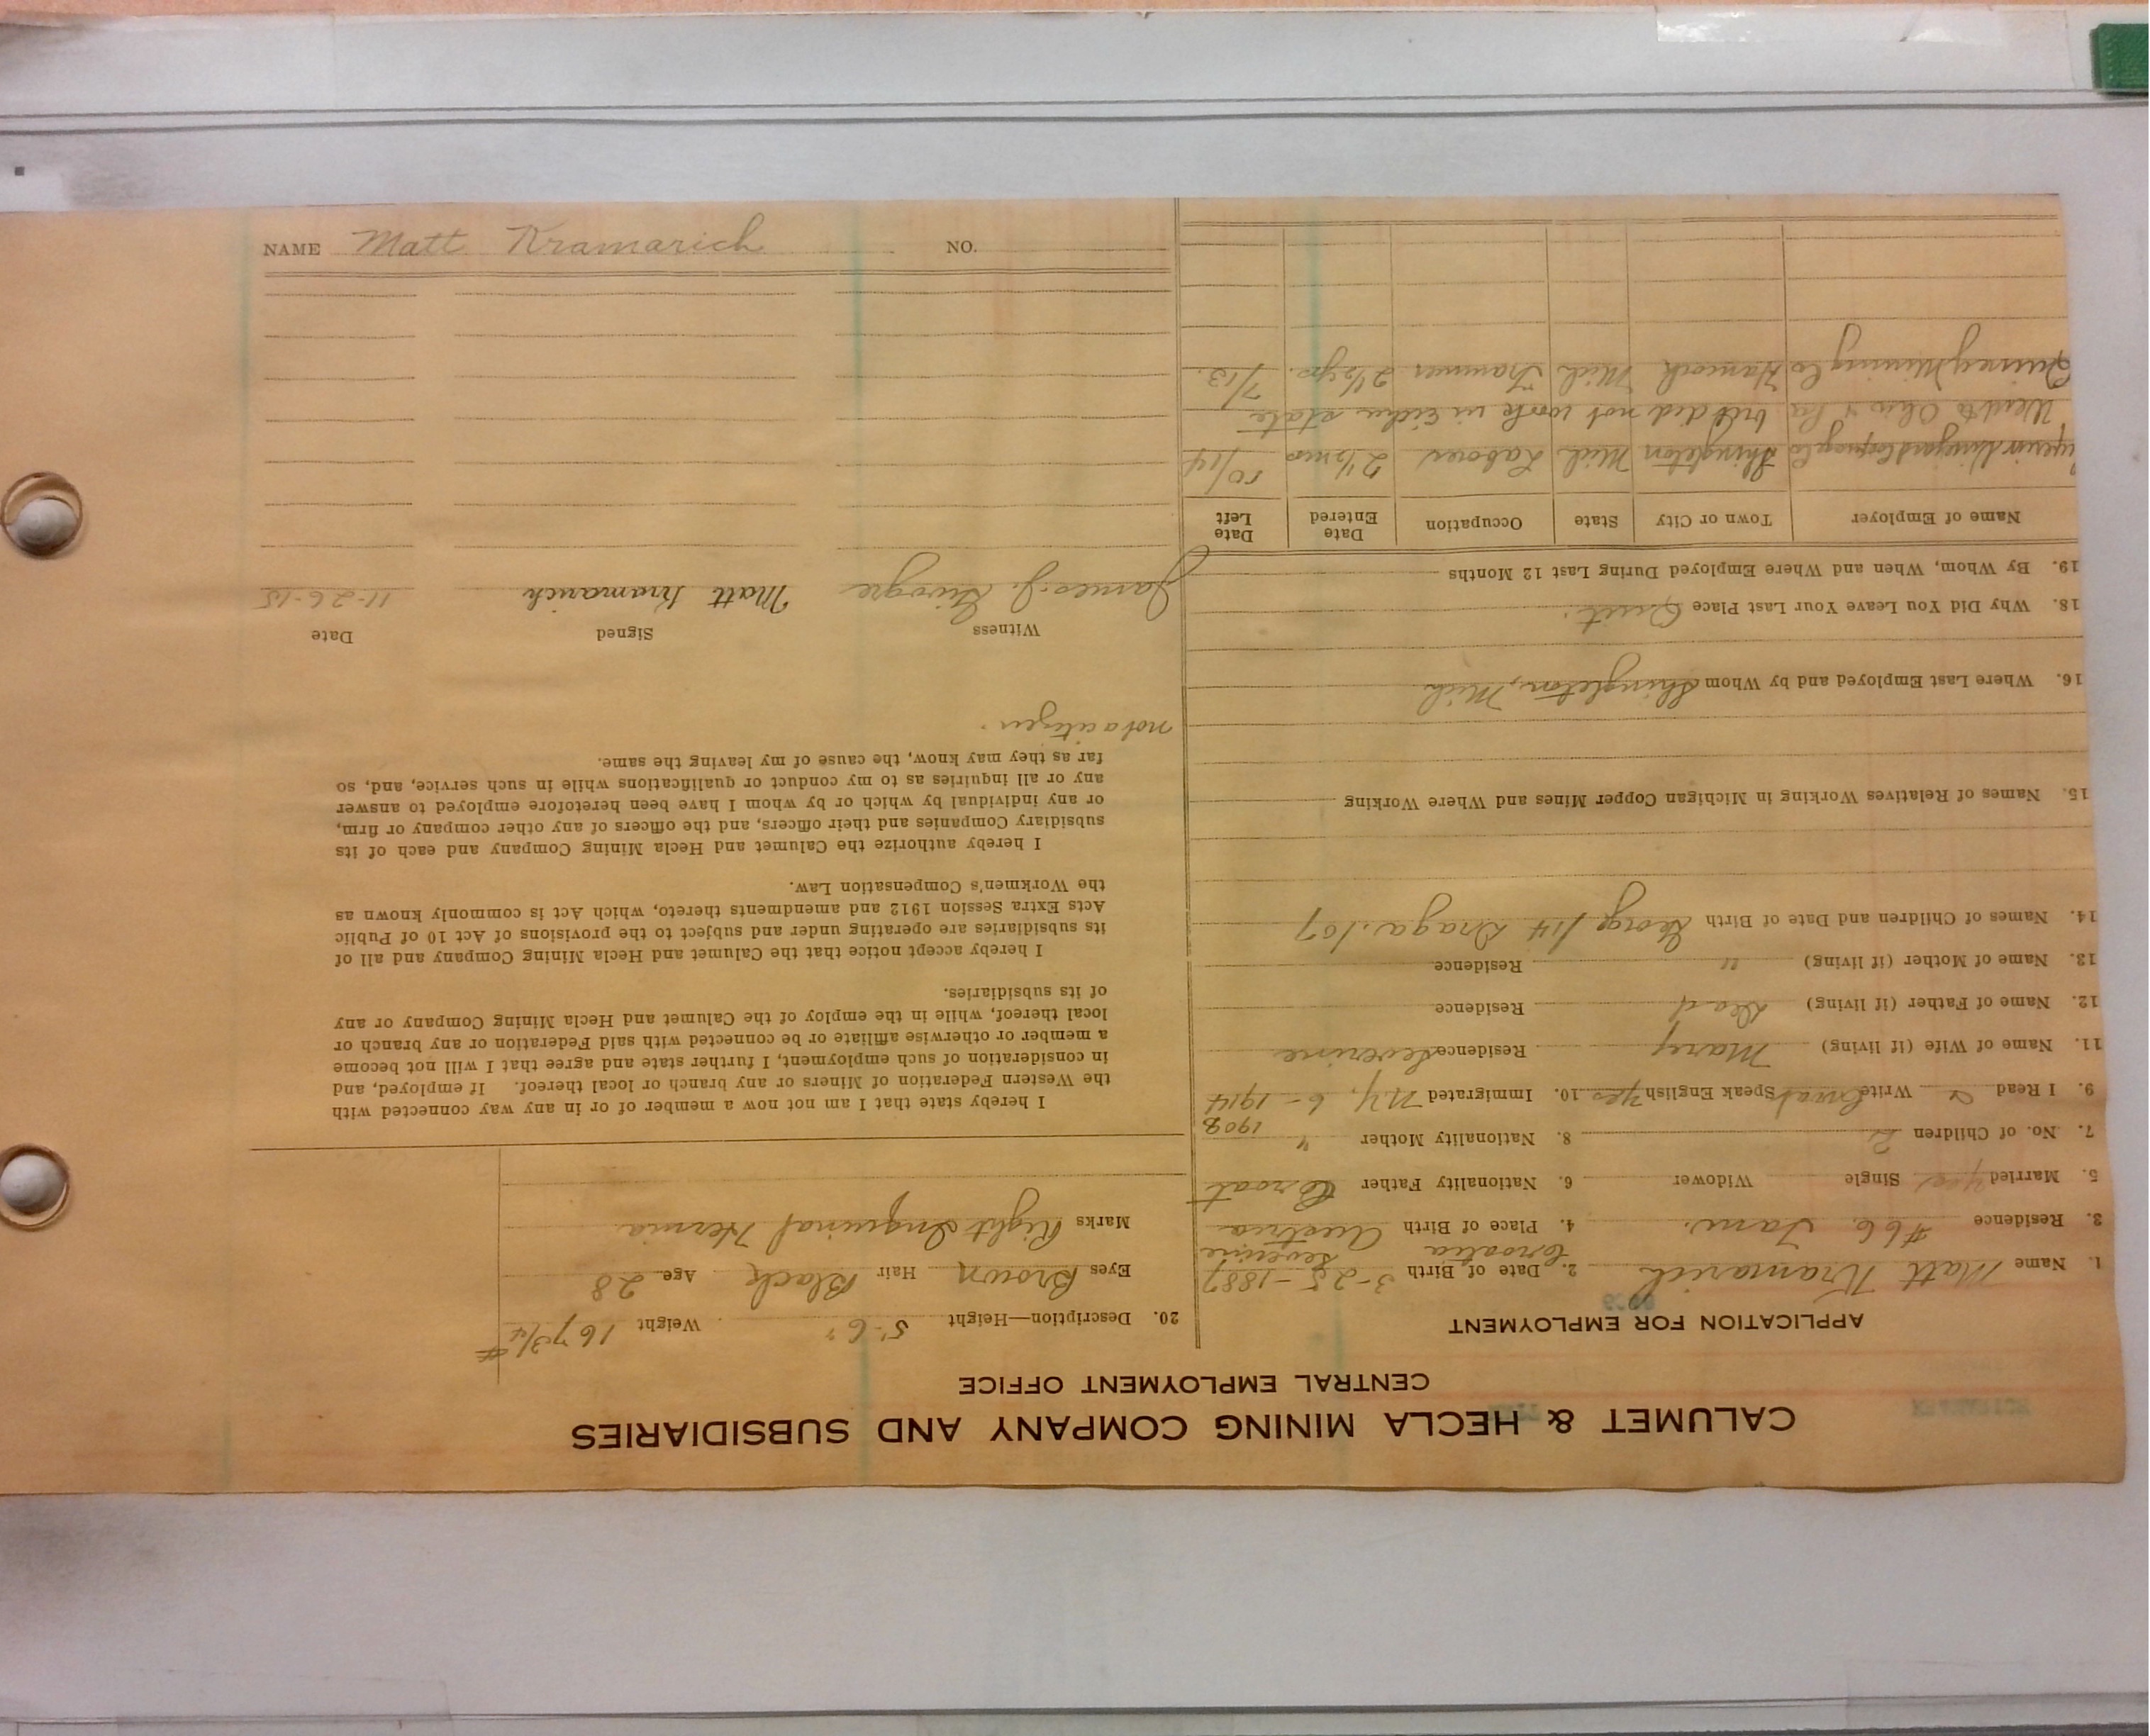 CALUMET & HECLA MINING COMPANY AND SUBSIDIARIES
CENTRAL EMPLOYMENT OFFICE
APPLICATION FOR EMPLOYMENT
1. Name Matt Kramarich 2. Date of Birth 3-25-1887
Croatia Severine
3. Residence #66 Tam. 4. Place of Birth Austria
5. Married yes Single Widower 6. Nationality Father Croat
7. No. of Children 2 8. Nationality Mother "
1908
9. I Read & Write Croat Speak English yes 10. Immigrated N.Y. 6-1914
11. Name of Wife (if living) Mary Residence Severine
12. Name of Father (if living) Dead Residence
13. Name of Mother (if living) " Residence
14. Names of Children and Date of Birth George /14 Draga /07
15. Names of Relatives Working in Michigan Copper Mines and Where Working
16. Where Last Employed and by Whom Shingleton, Mich
18. Why Did You Leave Your Last Place Quit.
19. By Whom, When and Where Employed During Last 12 Months
Name of Employer Town or City State Occupation Date Entered Date Left
Shingleton Mich Laborer 2½ mos 10/14
Went to Ohio & Pa but did not work in either state
Quincy Mining Co Hancock Mich Trammer 2½ yrs. 7/13.
20. Description—Height 5'-6" Weight 167 3/4 #
Eyes Brown Hair Black Age 28
Marks Right Inguinal Hernia
I hereby state that I am not now a member of or in any way connected with
the Western Federation of Miners or any branch or local thereof. If employed, and
in consideration of such employment, I further state and agree that I will not become
a member or otherwise affiliate or be connected with said Federation or any branch or
local thereof, while in the employ of the Calumet and Hecla Mining Company or any
of its subsidiaries.
I hereby accept notice that the Calumet and Hecla Mining Company and all of
its subsidiaries are operating under and subject to the provisions of Act 10 of Public
Acts Extra Session 1912 and amendments thereto, which Act is commonly known as
the Workmen's Compensation Law.
I hereby authorize the Calumet and Hecla Mining Company and each of its
subsidiary Companies and their officers, and the officers of any other company or firm,
or any individual by which or by whom I have been heretofore employed to answer
any or all inquiries as to my conduct or qualifications while in such service, and, so
far as they may know, the cause of my leaving the same.
not a citizen.
Witness Signed Date
James J. Matt Kramarich 11-26-15
NAME Matt Kramarich NO.